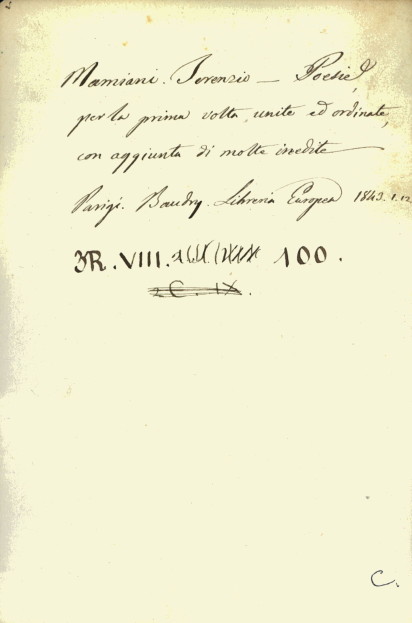 Mamiani. Terenzio — Poesie,
per la prima volta unite ed ordinate,
con aggiunta di molte inedite
Parigi. Baudry. Libreria Europea 1843. 1.12
3R. VIII. 100.
2C. IX.
C.